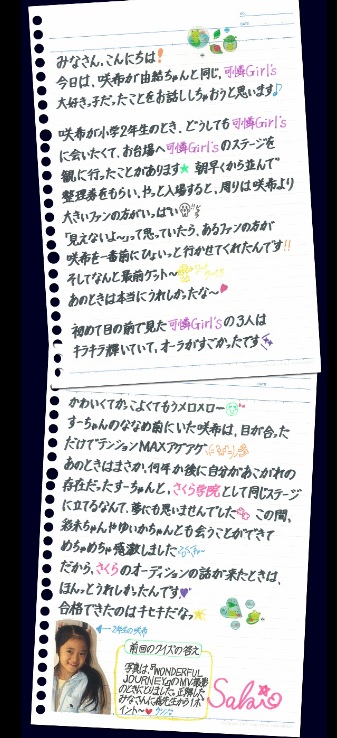 みなさん、こんにちは!
今日は、咲希が由結ちゃんと同じ、可憐Girl's
大好きっ子だったことをお話ししちゃおうと思います♪
咲希が小学2年生のとき、どうしても可憐Girl's
に会いたくて、お台場へ可憐Girl'sのステージを
観に行ったことがあります★ 朝早くから並んで
整理券をもらい、やっと入場すると、周りは咲希より
大きいファンの方がいっぱい
「見えないよ〜」って思っていたら、あるファンの方が
咲希を一番前にひょいっと行かせてくれたんです!!
そしてなんと最前ゲット〜
あのときは本当にうれしかったな〜♥
初めて目の前で見た可憐Girl'sの3人は
キラキラ輝いていて、オーラがすごかったです
かわいくてかっこよくてもうメロメロー
すぅちゃんのななめ前にいた咲希は、目が合った
だけでテンションMAXアゲアゲ
あのときはまさか、何年か後に自分があこがれの
存在だったすぅちゃんと、さくら学院として同じステージ
に立てるなんて、夢にも思いませんでした この間、
彩未ちゃんやゆいかちゃんとも会うことができて
めちゃめちゃ感激しました
だから、さくらのオーディションの話が来たときは、
ほんっとうれしかったんです♥
合格できたのはキセキだなっ
←2年生の咲希
前回のクイズの答え
写真は、『WONDERFUL
JOURNEY』のMV撮影
のときにとりました。正解した
みなさんに森先生から1ポ
イント〜♥
Saki